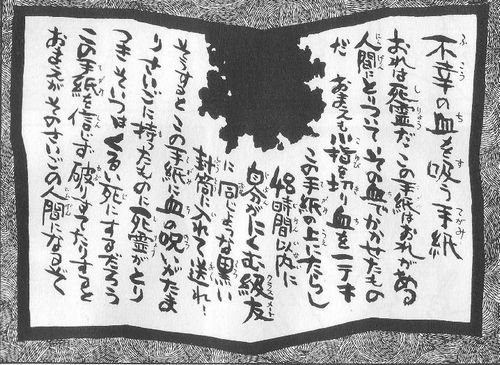 不幸の血を吸う手紙
おれは死霊だ この手紙はおれがある
人間にとりついて その血でかかせたもの
だ おまえも小指を切り血を一テキ
この手紙の上にたらし
48時間以内に
自分がにくむ級友
に同じような黒い
封筒に入れて送れ!
そうするとこの手紙に血の呪いがたま
りさいごに持ったものに死霊がとり
つき そいつはくるい死にするだろう
この手紙を信じず 破りすてたりすると
おまえがそのさいごの人間になるぞ